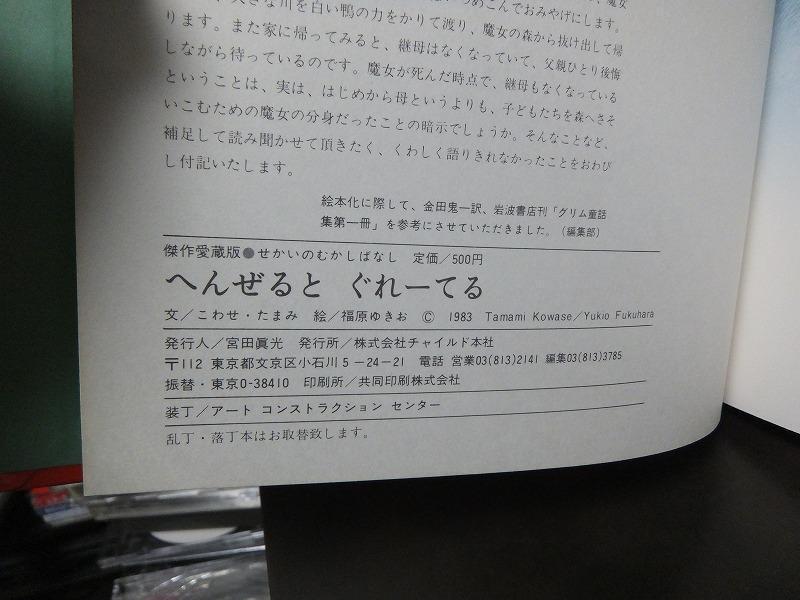 魔女
つめこんでおみやげにします。
大きな川を白い鴨の力をかりて渡り、魔女の森から抜け出して帰
ります。また家に帰ってみると、継母はなくなっていて、父親ひとり後悔
しながら待っているのです。魔女が死んだ時点で、継母もなくなっている
ということは、実は、はじめから母というよりも、子どもたちを森へさそ
いこむための魔女の分身だったことの暗示でしょうか。そんなことなど、
補足して読み聞かせて頂きたく、くわしく語りきれなかったことをおわび
し付記いたします。
絵本化に際して、金田鬼一訳、岩波書店刊「グリム童話
集第一冊」を参考にさせていただきました。（編集部）
傑作愛蔵版●せかいのむかしばなし　定価／500円
へんぜると　ぐれーてる
文／こわせ・たまみ　絵／福原ゆきお　Ⓒ　1983　Tamami Kowase／Yukio Fukuhara
発行人／宮田眞光　発行所／株式会社チャイルド本社
〒112　東京都文京区小石川5－24－21　電話　営業03(813)2141　編集03(813)3785
振替・東京0-38410　印刷所／共同印刷株式会社
装丁／アート　コンストラクション　センター
乱丁・落丁本はお取替致します。